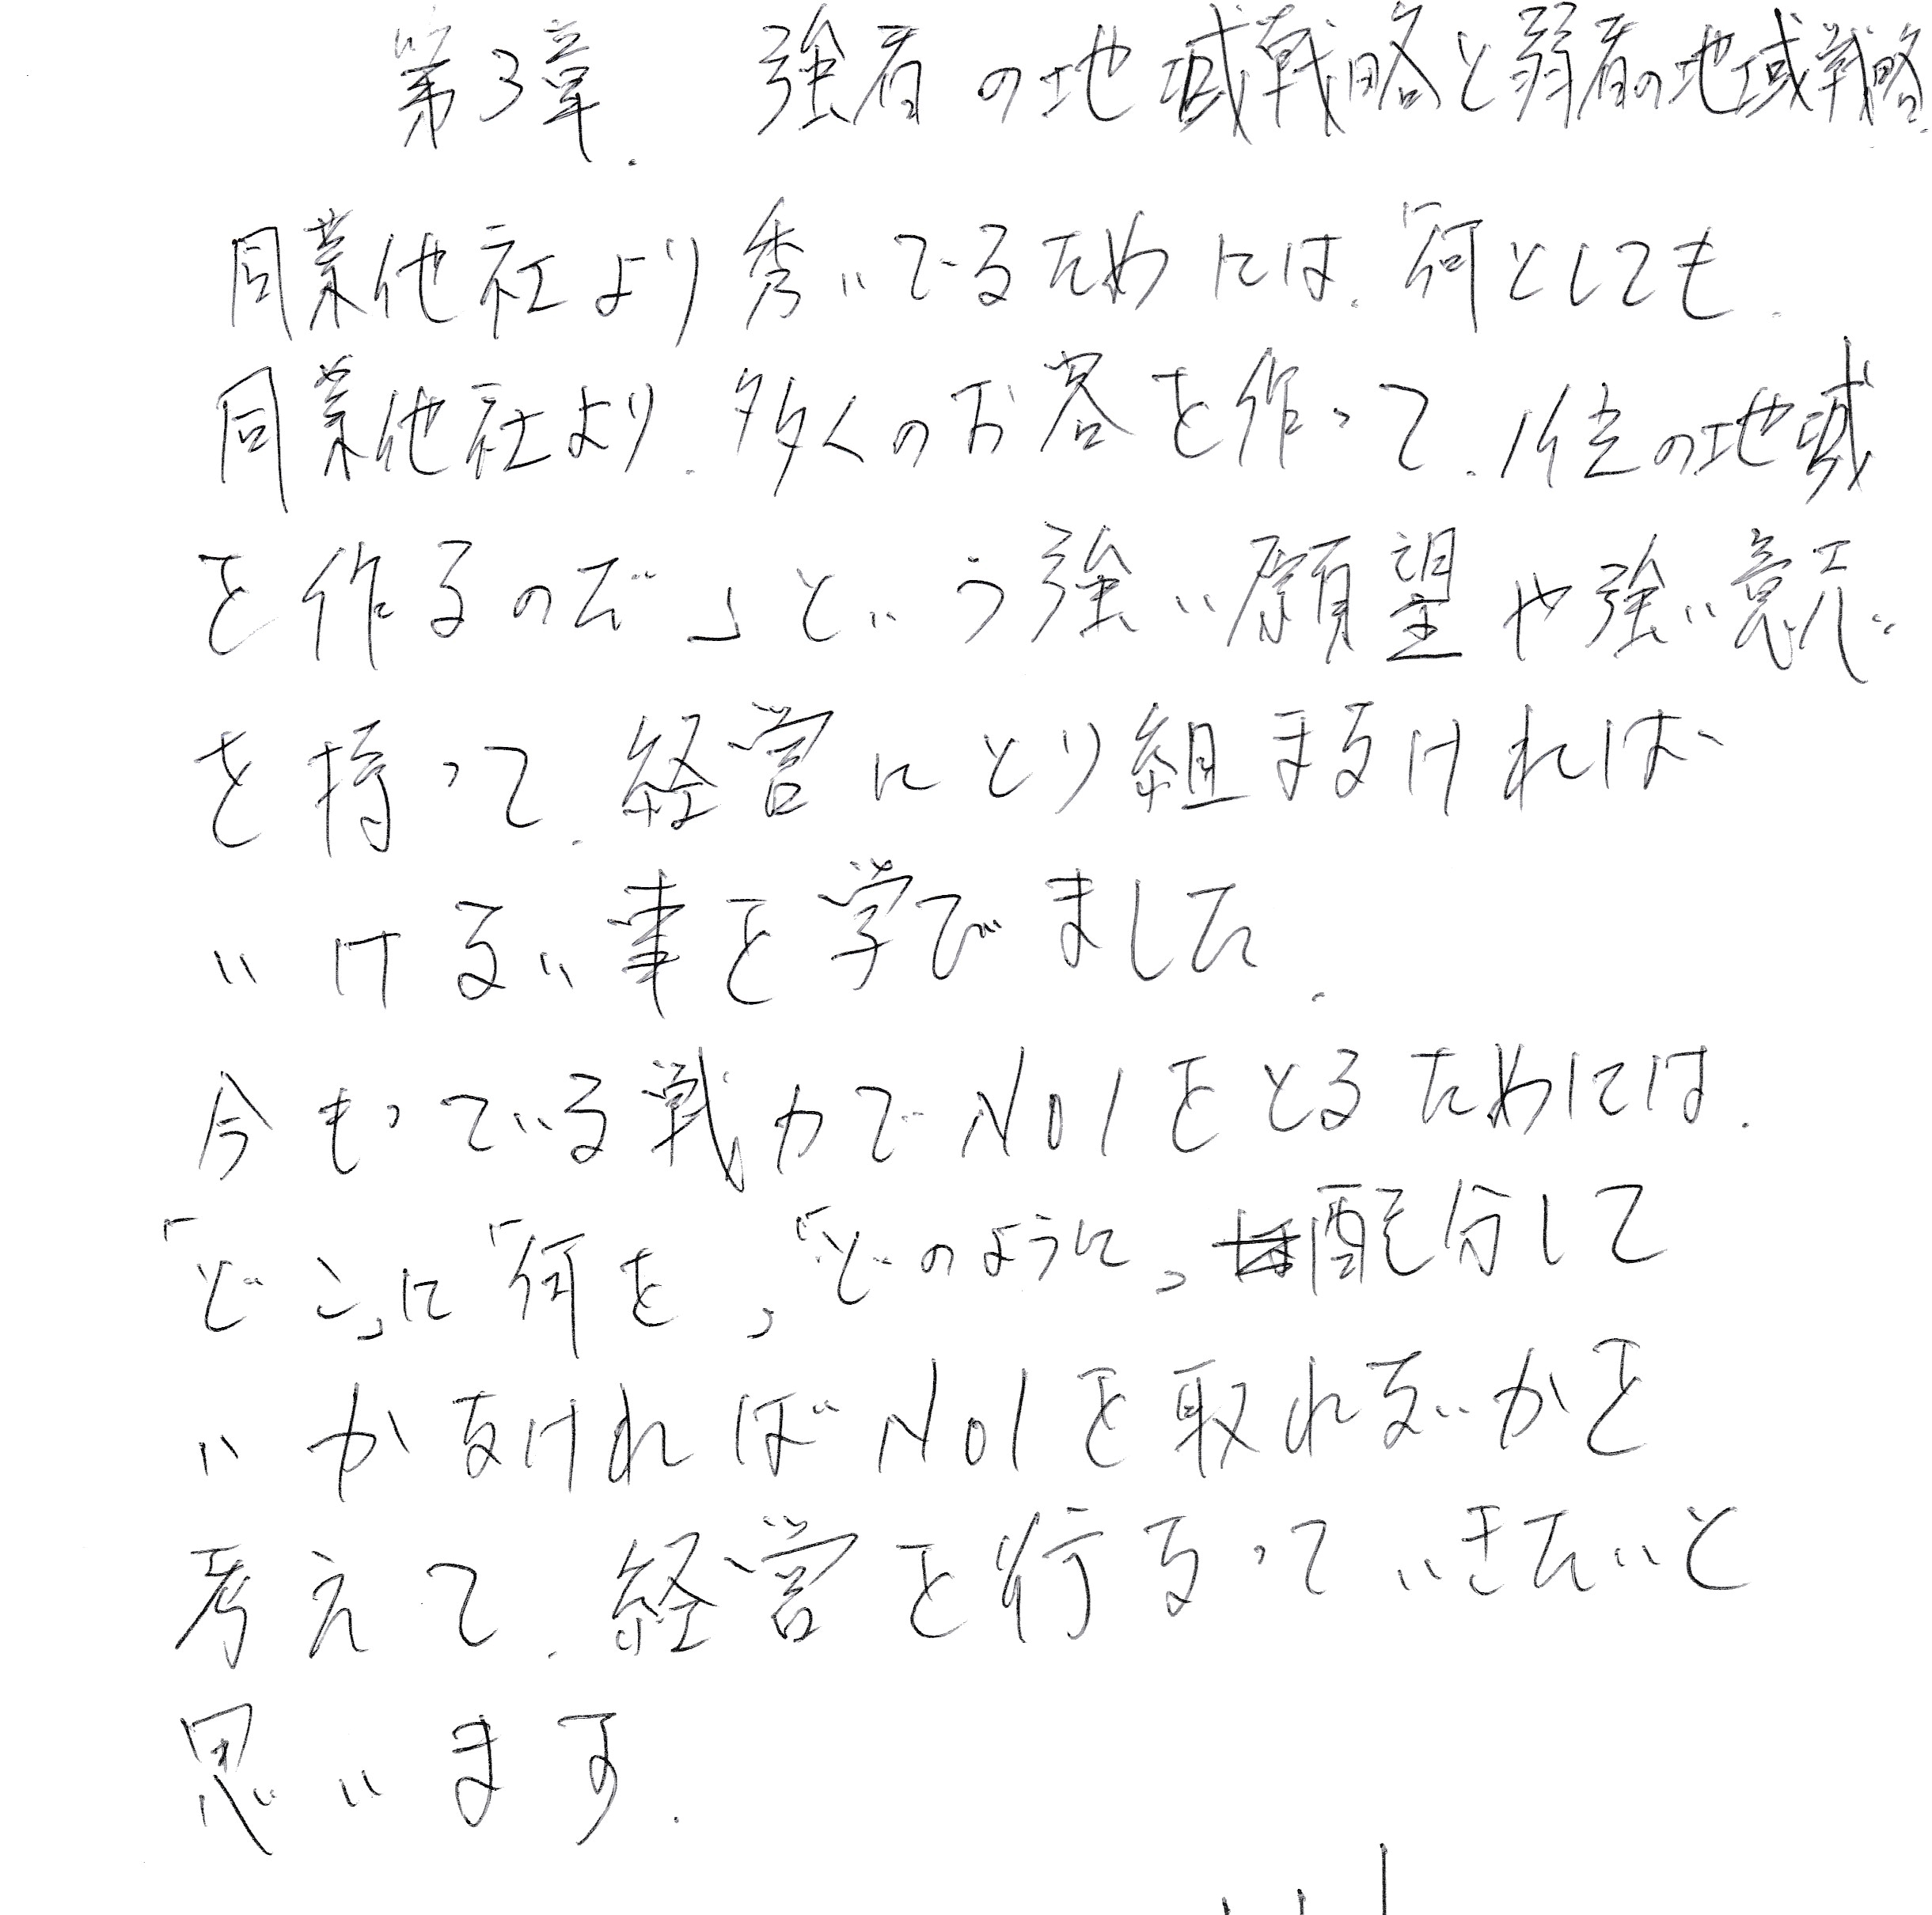 第3章. 強者の地域戦略と弱者の地域戦略.
同業他社より秀いでるためには.「何としても.
同業他社より.多くのお客を作って.1位の地域
を作るのだ」という強い願望や強い意志
を持って.経営にとり組まなければ
いけない事を学びました.
今もっている戦力でNO1をとるためには.
「どこ」に「何を」「どのように」配分して
いかなければNO1を取れないかを
考えて.経営を行なっていきたいと
思います.